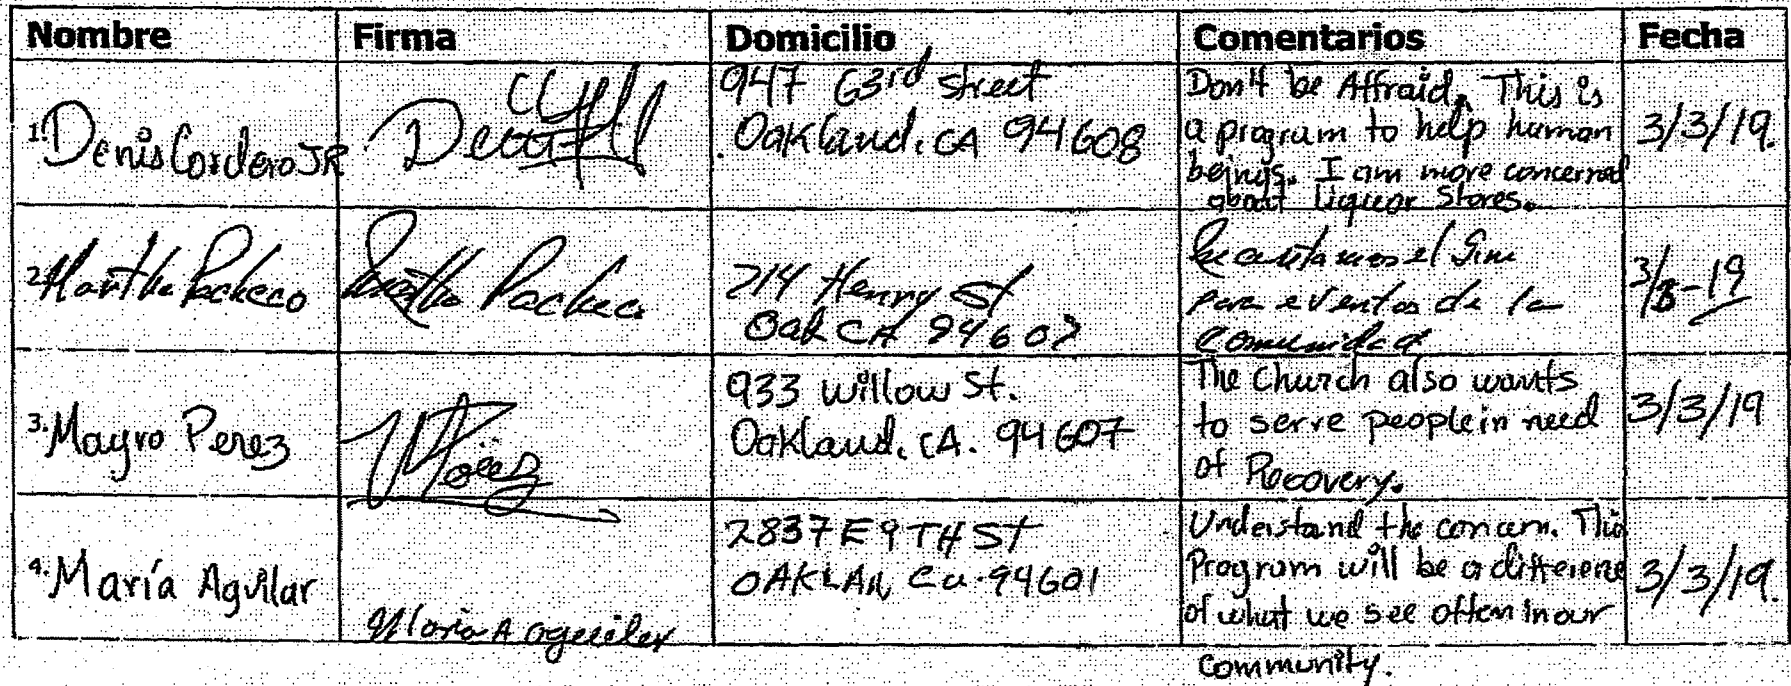 Nombre Firma Domicilio Comentarios Fecha
1. Denis Cordero JR
947 63rd Street
Oakland, CA 94608
Don't be Affraid. This is
a program to help human
beings. I am more concerned
about Liquor Stores.
3/3/19.
2. Martha Pacheco
Martha Pacheco
714 Henry St
Oak CA 94607
el Gim
para eventos de la
Comunidad
3/3-19
3. Mayro Perez
933 Willow St.
Oakland, CA. 94607
The Church also wants
to serve people in need
of Recovery.
3/3/19
4. María Aguilar
Maria A aguiler
2837 E 9TH ST
OAKLAN, Ca. 94601
Understand the concern. This
Program will be a difference
of what we see often in our
community.
3/3/19.